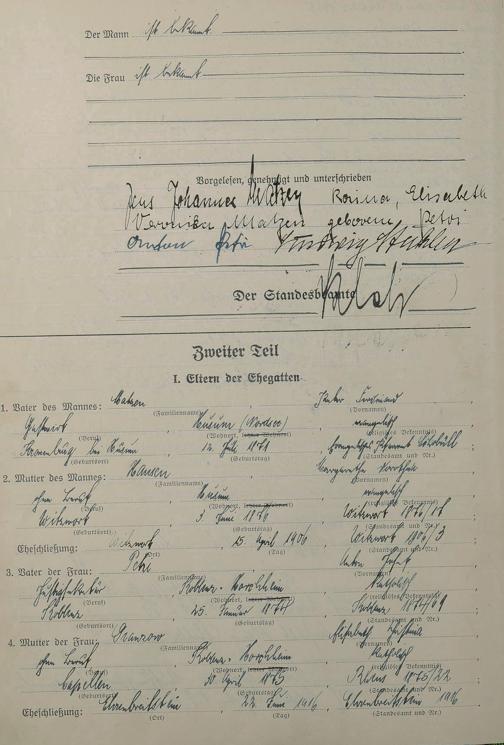 Der Mann ist bekannt
Die Frau ist bekannt
Vorgelesen, genehmigt und unterschrieben
Jens Johannes Matzen Rosina, Elisabeth
Veronika Matzen geborene Petri
Anton Petri Ludwig
Der Standesbeamte
Zweiter Teil
I. Eltern der Ehegatten
1. Vater des Mannes: Matzen , Ferdinand
(Familienname) (Vornamen)
Gastwirt , Husum (Nordsee) , evangelisch
(Beruf) (Wohnort, (religiöses Bekenntnis)
bei Husum , 12. Juli 1871 , Standesamt
(Geburtsort) (Geburtstag) (Standesamt und Nr.)
2. Mutter des Mannes: Hansen , Margarethe Dorothea
(Familienname) (Vornamen)
ohne Beruf , Husum , evangelisch
(Beruf) (Wohnort, (religiöses Bekenntnis)
Witzwort , 3. Juni 1876 , Witzwort 1876/
(Geburtsort) (Geburtstag) (Standesamt und Nr.)
Eheschließung: Witzwort 25. April 1906 Witzwort 1906/3
(Ort) (Tag) (Standesamt und Nr.)
3. Vater der Frau: Petri , Anton Josef
(Familienname) (Vornamen)
Koblenz-Horchheim , katholisch
(Beruf) (Wohnort, (religiöses Bekenntnis)
Koblenz , 25. Januar 1874 , Koblenz 1874/
(Geburtsort) (Geburtstag) (Standesamt und Nr.)
4. Mutter der Frau: , Elisabeth Christina
(Familienname) (Vornamen)
ohne Beruf , Koblenz-Horchheim , katholisch
(Beruf) (Wohnort, (religiöses Bekenntnis)
Capellen , 30. April 1875 , Rhens 1875/22
(Geburtsort) (Geburtstag) (Standesamt und Nr.)
Eheschließung: Ehrenbreitstein 22. Juni 1916 Ehrenbreitstein 1916
(Ort) (Tag) (Standesamt und Nr.)